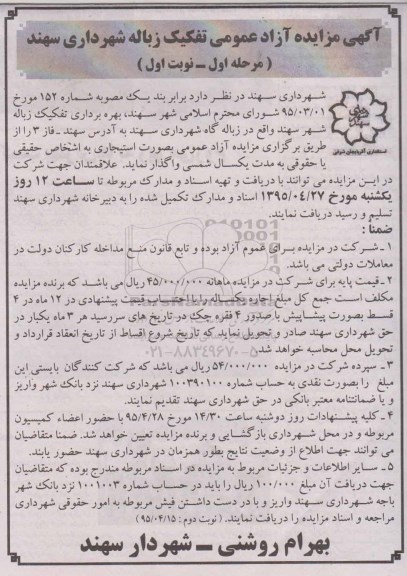 آگهی مزایده آزاد عمومی تفکیک زباله شهرداری سهند
( مرحله اول ــ نوبت اول )
شهرداری سهند در نظر دارد برابر بند یک مصوبه شماره ۱۵۲ مورخ
۹۵/۰۳/۰۱ شورای محترم اسلامی شهر سهند، بهره برداری تفکیک زباله
شهر سهند واقع در زباله گاه شهرداری سهند به آدرس سهند ـ فاز ۳ را از
طریق برگزاری مزایده آزاد عمومی بصورت استیجاری به اشخاص حقیقی
یا حقوقی به مدت یکسال شمسی واگذار نماید. علاقمندان جهت شرکت
استانداری آذربایجان شرقی
در این مزایده می توانند با دریافت و تهیه اسناد و مدارک مربوطه تا ساعت ۱۲ روز
یکشنبه مورخ ۱۳۹۵/۰۴/۲۷ اسناد و مدارک تکمیل شده را به دبیرخانه شهرداری سهند
تسلیم و رسید دریافت نمایند.
ضمنا :
۱ ـ شرکت در مزایده برای عموم آزاد بوده و تابع قانون منع مداخله کارکنان دولت در
معاملات دولتی می باشد.
۲ ـ قیمت پایه برای شرکت در مزایده ماهانه ۴۵/۰۰۰/۰۰۰ ریال می باشد که برنده مزایده
مکلف است جمع کل مبلغ اجاره یکساله را با احتساب قیمت پیشنهادی در ۱۲ ماه در ۴
قسط بصورت پیشاپیش با صدور ۴ فقره چک در تاریخ های سررسید هر ۳ ماه یکبار در
حق شهرداری سهند صادر و تحویل نماید که تاریخ شروع اقساط از تاریخ انعقاد قرارداد و
تحویل محل محاسبه خواهد شد.
۰۲۱-۸۸۳۴۹۶۷۰-۵
۳ ـ سپرده شرکت در مزایده ۵۴/۰۰۰/۰۰۰ ریال می باشد که شرکت کنندگان بایستی این
مبلغ را بصورت نقدی به حساب شماره ۱۰۰۳۹۰۱۰۰ شهرداری سهند نزد بانک شهر واریز
و یا ضمانتنامه معتبر بانکی در حق شهرداری سهند تقدیم نمایند.
۴ ـ کلیه پیشنهادات روز دوشنبه ساعت ۱۴/۳۰ مورخ ۹۵/۴/۲۸ با حضور اعضاء کمیسیون
مربوطه و در محل شهرداری بازگشایی و برنده مزایده تعیین خواهد شد. ضمنا متقاضیان
می توانند جهت اطلاع از وضعیت نتایج بطور همزمان در شهرداری سهند حضور یابند.
۵ ـ سایر اطلاعات و جزئیات مربوط به مزایده در اسناد مربوطه مندرج بوده که متقاضیان
جهت دریافت آن مبلغ ۱۰۰/۰۰۰ ریال را باید در حساب شماره ۱۰۰۱۰۰۳ نزد بانک شهر
باجه شهرداری سهند واریز و با در دست داشتن فیش مربوطه به امور حقوقی شهرداری
مراجعه و اسناد مزایده را دریافت نمایند. ( نوبت دوم : ۹۵/۰۴/۱۵ )
بهرام روشنی ــ شهردار سهند